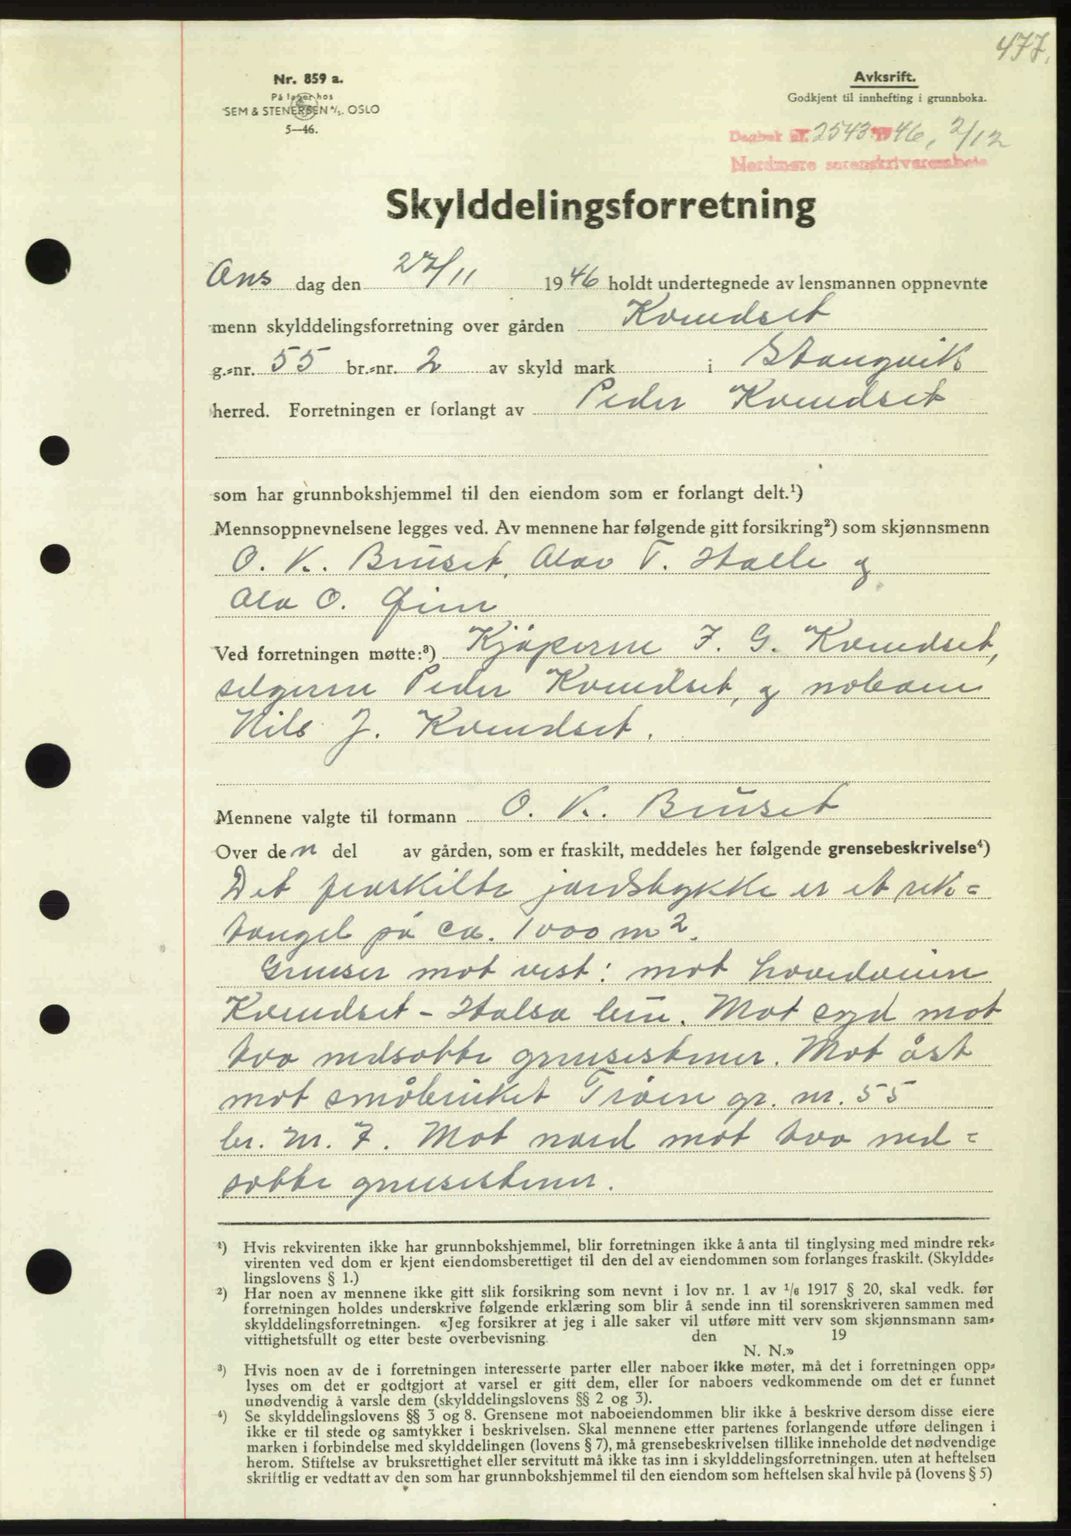 477.
Nr. 859 a.
På lager hos
SEM & STENERSEN A/S. OSLO
5—46.
Avksrift.
Godkjent til innhefting i grunnboka.
Dagbok nr. 2543 1946, 2/12
Nordmøre sorenskriverembete
Skylddelingsforretning
Ons dag den 27/11 1946 holdt undertegnede av lensmannen oppnevnte
menn skylddelingsforretning over gården Kvendset
g.-nr. 55 br.-nr. 2 av skyld mark i Stangvik
herred. Forretningen er forlangt av Peder Kvendset
som har grunnbokshjemmel til den eiendom som er forlangt delt.¹)
Mennsoppnevnelsene legges ved. Av mennene har følgende gitt forsikring²) som skjønnsmenn
O. K. Bruset, Olav T. Halle og
Ola O. Øien
Ved forretningen møtte:³) Kjøperne F. G. Kvendset,
selgerne Peder Kvendset, og naboene
Nils J. Kvendset.
Mennene valgte til formann O. K. Bruset
Over den del av gården, som er fraskilt, meddeles her følgende grensebeskrivelse⁴)
Det fraskilte jordstykke er et rek-
tangel på ca. 1000 m².
Grenser mot vest: mot hovedveien
Kvendset - Halsa bru. Mot syd mot
tvo nedsatte grensestener. Mot øst
mot småbruket Trøen gr. nr. 55
br. nr. 7. Mot nord mot tvo ned-
satte grensestener.
¹) Hvis rekvirenten ikke har grunnbokshjemmel, blir forretningen ikke å anta til tinglysing med mindre rek-
virenten ved dom er kjent eiendomsberettiget til den del av eiendommen som forlanges fraskilt. (Skyldde-
lingslovens § 1.)
²) Har noen av mennene ikke gitt slik forsikring som nevnt i lov nr. 1 av ¹/₆ 1917 § 20, skal vedk. før
forretningen holdes underskrive følgende erklæring som blir å sende inn til sorenskriveren sammen med
skylddelingsforretningen. «Jeg forsikrer at jeg i alle saker vil utføre mitt verv som skjønnsmann sam-
vittighetsfullt og etter beste overbevisning den 19
N. N.»
³) Hvis noen av de i forretningen interesserte parter eller naboer ikke møter, må det i forretningen opp-
lyses om det er godtgjort at varsel er gitt dem, eller for naboers vedkommende om det er funnet
unødvendig å varsle dem (skylddelingslovens §§ 2 og 3).
⁴) Se skylddelingslovens §§ 3 og 8. Grensene mot naboeiendommen blir ikke å beskrive dersom disse eiere
ikke er til stede og samtykker i beskrivelsen. Skal mennene etter partenes forlangende utføre delingen i
marken i forbindelse med skylddelingen (lovens § 7), må grensebeskrivelsen tillike inneholde det nødvendige
herom. Stiftelse av bruksrettighet eller servitutt må ikke tas inn i skylddelingsforretningen. uten at heftelsen
skriftlig er vedtatt av den som har grunnbokshjemmel til den eiendom som heftelsen skal hvile på (lovens § 5)